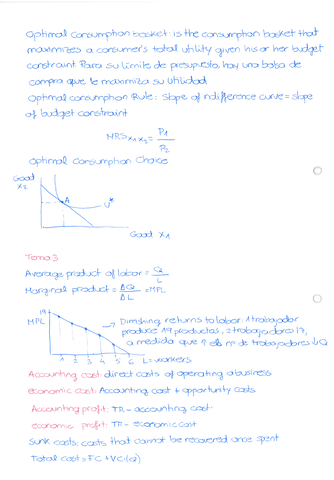 Optimal consumption basket: is the consumption basket that
maximizes a consumer's total utility given his or her budget
constraint. Para su límite de presupuesto, hay una bolsa de
compra que le maximiza su utilidad
Optimal consumption Rule: Slope of indifference curve = slope
of budget constraint
MRS x1 x2 = P1
P2
Optimal Consumption Choice
Good
x2
A
U*
Good x1
Tema 3
Average product of labor = Q
L
Marginal product = ΔQ = MPL
ΔL
19
MPL
→ Dimshing returns to labor: 1 trabajador
produce 19 productos, 2 trabajadores 17,
a medida que ↑ els nº de trabajadores ↓Q
1 2 3 4 5 6 L=workers
Accounting cost: direct costs of operating a business
economic cost: Accounting cost + opportunity costs
Accounting profit: TR - accounting cost
economic profit: TR - economic cost
Sunk costs: costs that cannot be recovered once spent
Total cost = FC + VC(Q)